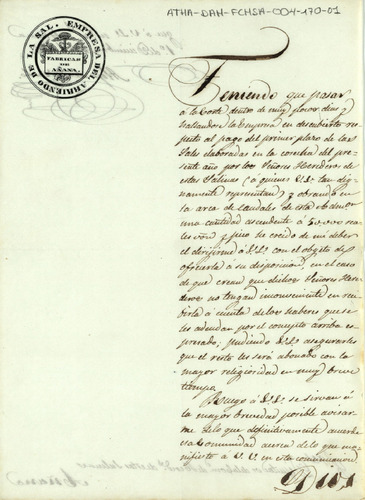 ATHA-DAH-FCHSA-C04-170-01
EMPRESA DEL ARRIENDO DE LA SAL.
FABRICAS DE AÑANA.
Teniendo que pasar
á la Corte dentro de muy pocos dias y
hallandose la Empresa en descubierto res-
pecto al pago del primer plazo de las
Sales elaboradas en la cosecha del pre-
sente año por los Señores Herederos de
estas Salinas, á quienes V.V. tan dig-
namente representan, y obrando en
la arca de caudales de esta Admon
una cantidad ascendente á 50,000 rea-
les von y pico he creido de mi deber
el dirijirme á V.V. con el objeto de
ofrecerla á su disposicion, en el caso
de que crean que dichos Señores Here-
deros no tengan inconveniente en reci-
birla á cuenta de los haberes que se
les adeudan por el concepto arriba es-
presado; pudiendo V.V. asegurarles
que el resto les será abonado con la
mayor religiosidad en muy breve
tiempo.
Ruego á V.V. se sirvan á
la mayor brevedad posible avisar-
me lo que definitivamente acuerde
esa Comunidad acerca de lo que ma-
nifiesto á V.V. en esta comunicacion
Dios